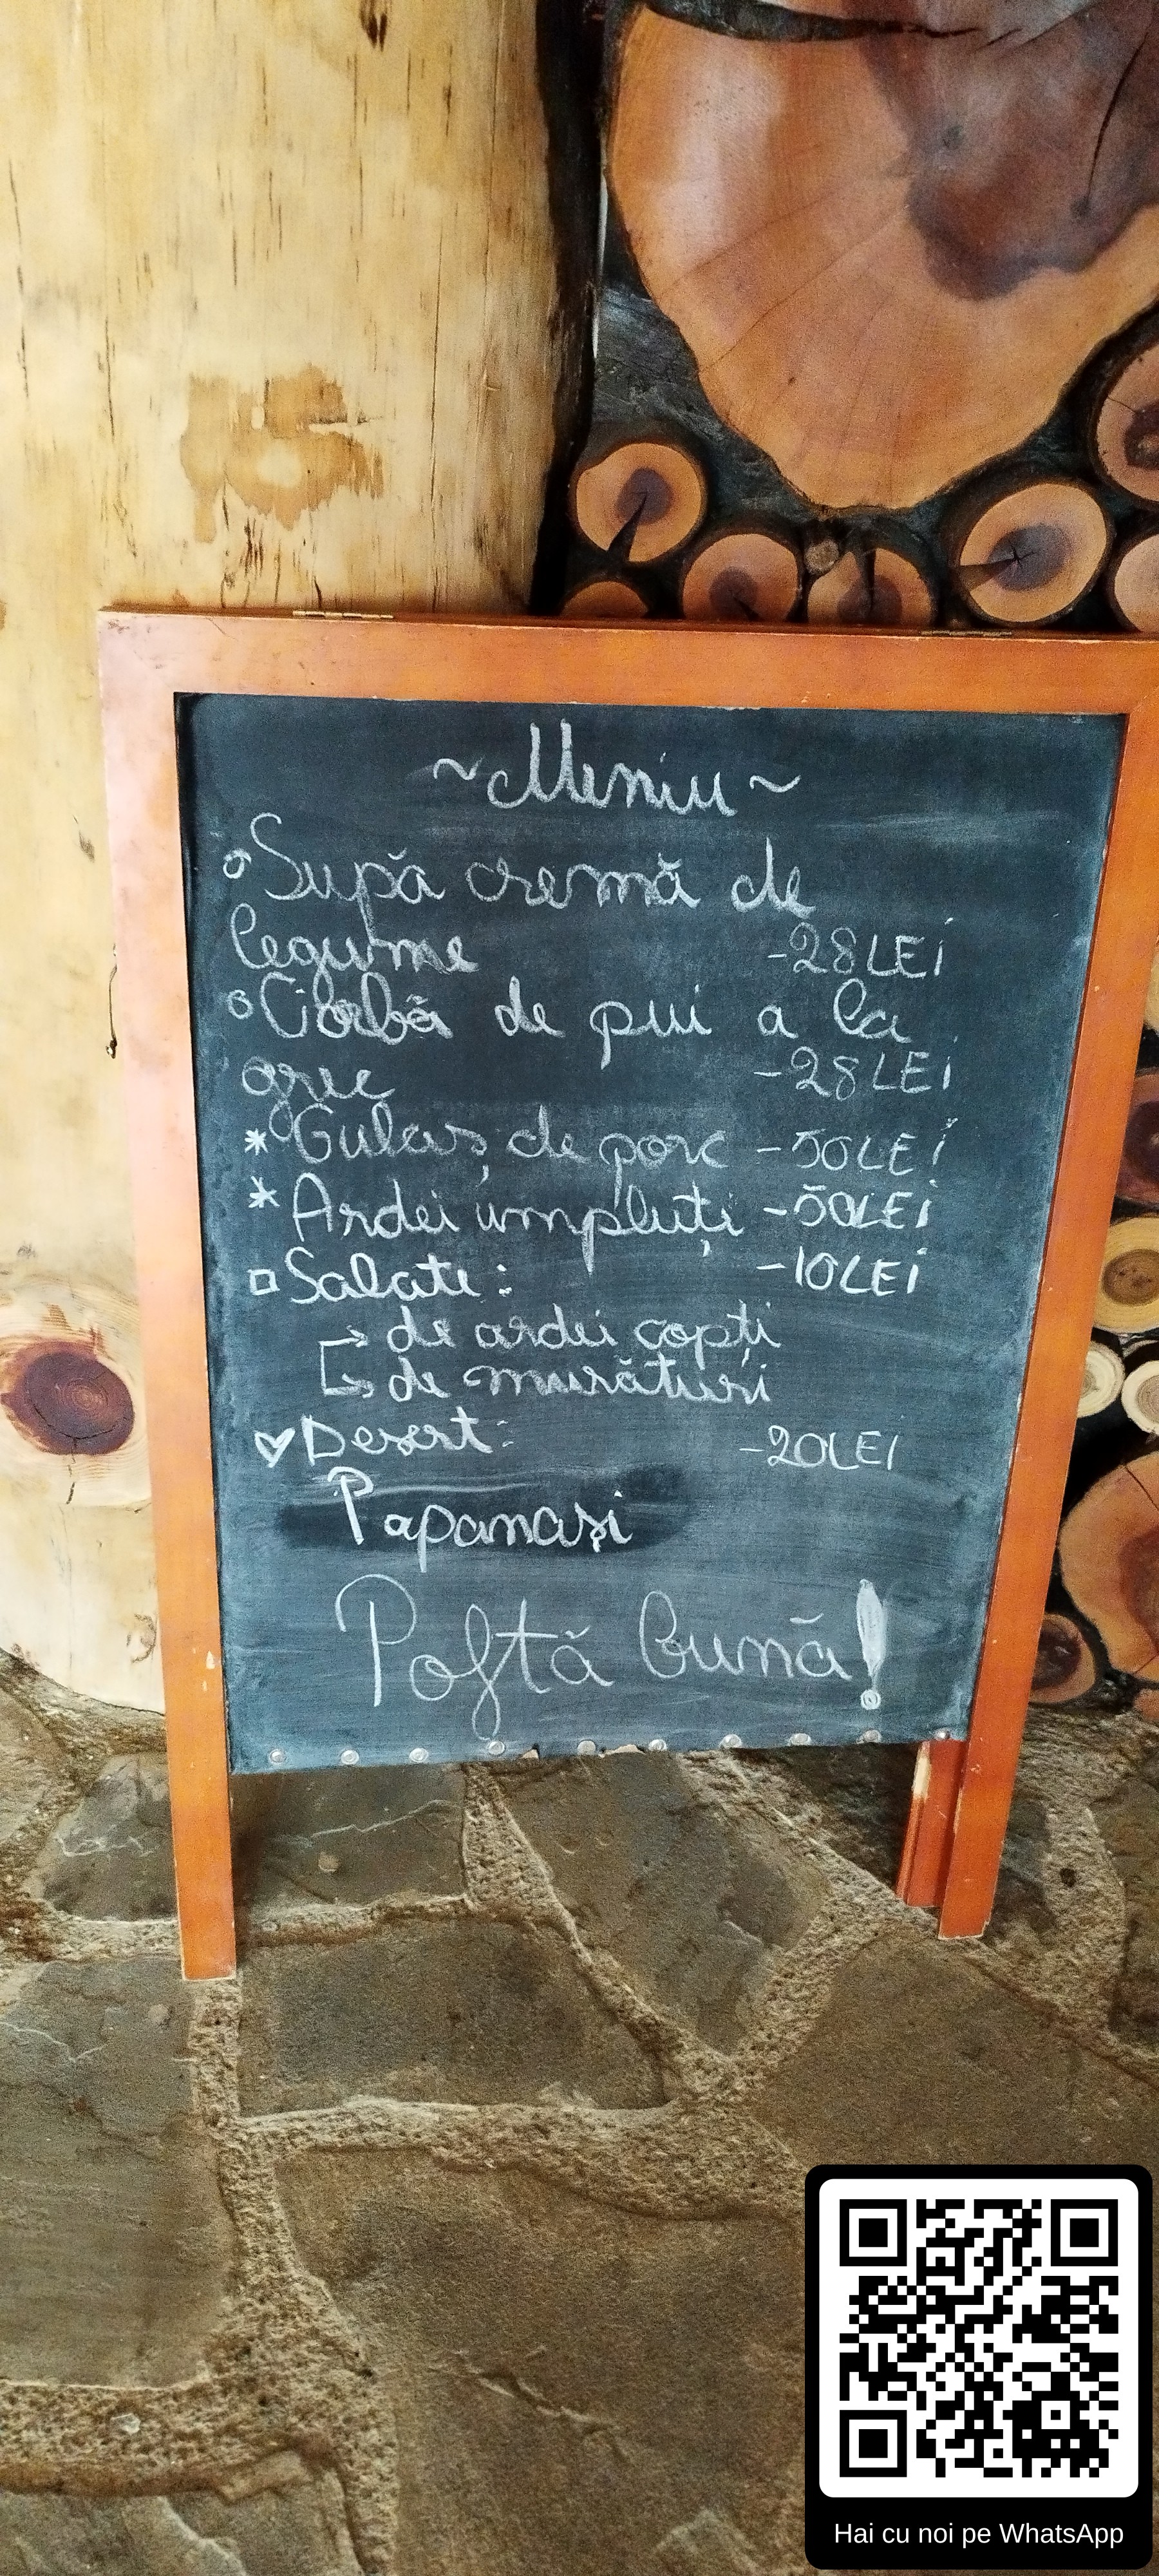 ~Meniu~
Supă cremă de
legume -28LEI
Ciorbă de pui a la
grec -28LEI
* Gulaș de porc -50LEI
* Ardei umpluți -50LEI
Salate: -10LEI
→ de ardei copți
→ de murături
♡ Desert: -20LEI
Papanași
Poftă bună!
Hai cu noi pe WhatsApp